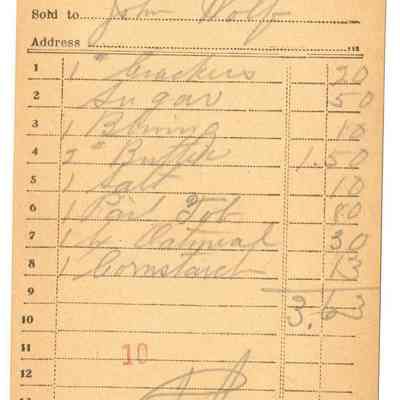 Sold to John Wolf
Address
1 1 " Crackers 20
2 Sugar 50
3 1 Bluing 10
4 2 " Butter 1.50
5 1 Salt 10
6 1 Pail Tob 80
7 1 Oatmeal 30
8 1 Cornstarch 13
9 3.63
10
11 10
12
13